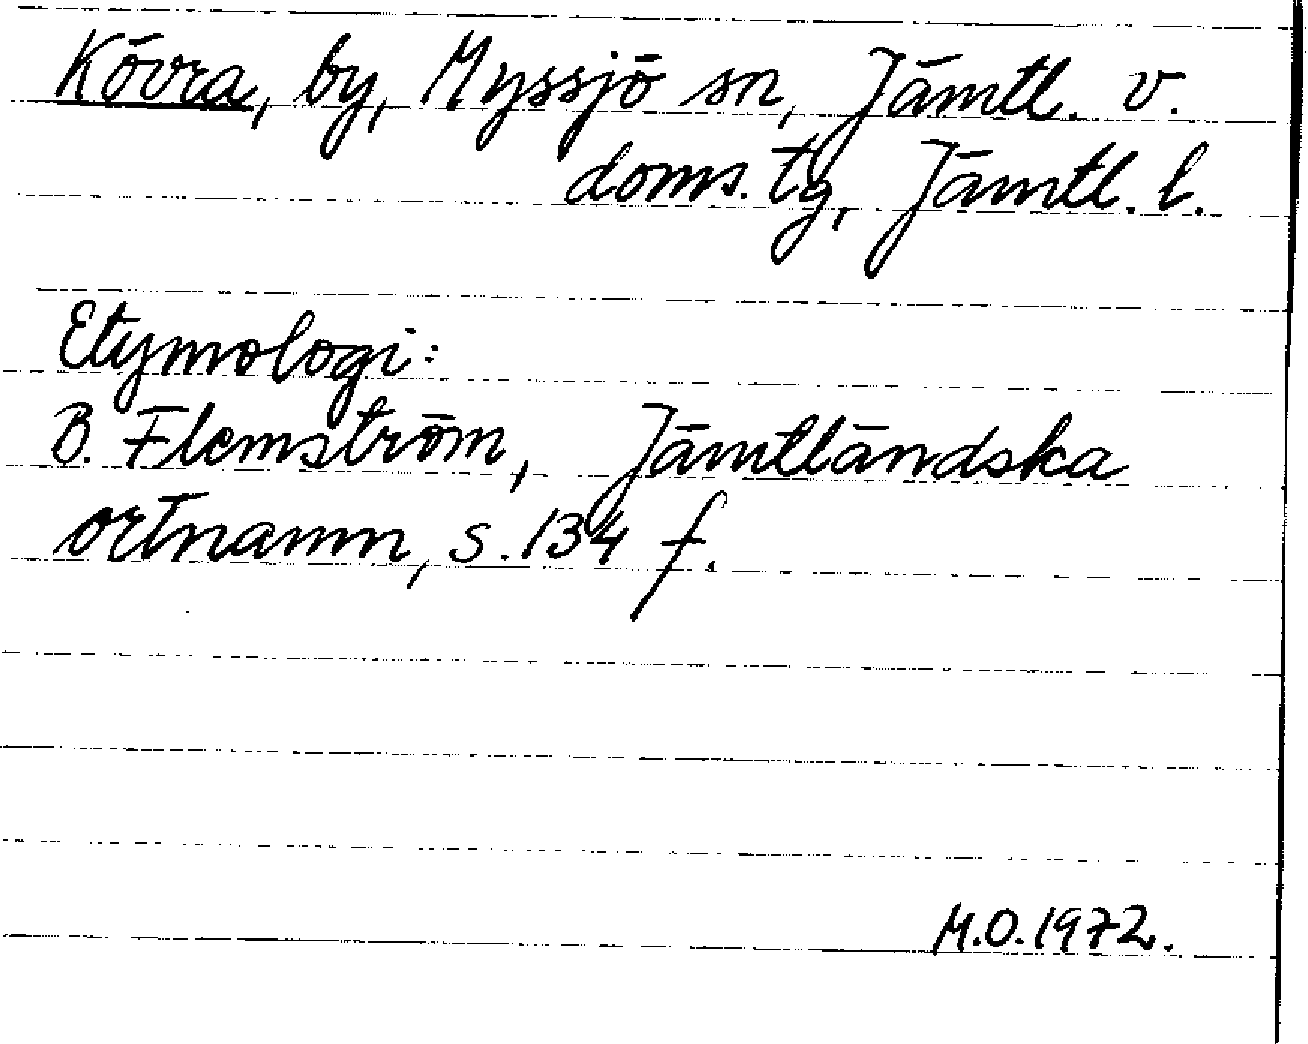 Kövra, by, Myssjö sn, Jämtl. v.
doms. tg, Jämtl. l.
Etymologi:
B. Flemström, Jämtländska
ortnamn, s. 134 f.
M.O. 1972.